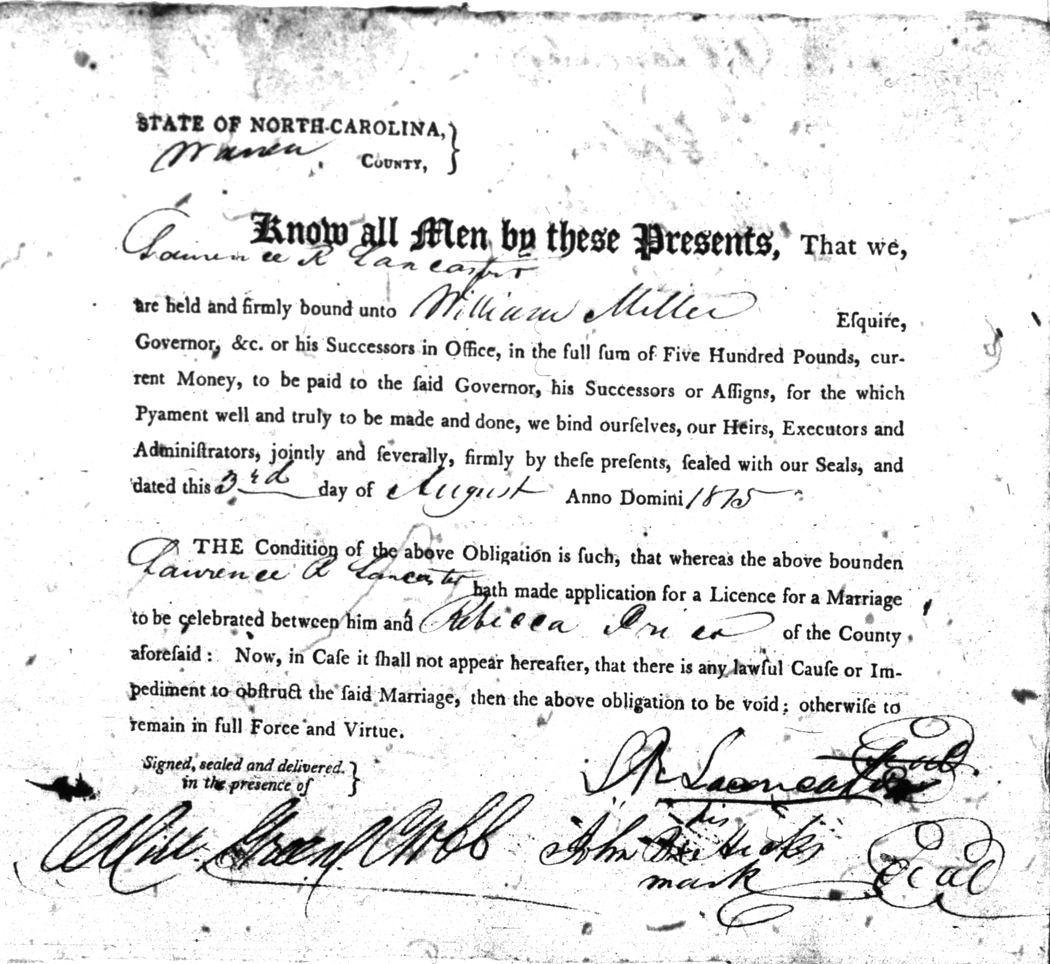 STATE OF NORTH-CAROLINA,
Warren County,
Know all Men by these Presents, That we,
Lawrence R Lancaster
are held and firmly bound unto William Miller Eſquire,
Governor, &c. or his Successors in Office, in the full ſum of Five Hundred Pounds, cur-
rent Money, to be paid to the ſaid Governor, his Successors or Aſſigns, for the which
Pyament well and truly to be made and done, we bind ourſelves, our Heirs, Executors and
Adminiſtrators, jointly and ſeverally, firmly by theſe preſents, ſealed with our Seals, and
dated this 3rd day of August Anno Domini 1815
THE Condition of the above Obligation is ſuch, that whereas the above bounden
Lawrence R Lancaster hath made application for a Licence for a Marriage
to be celebrated between him and Rebecca of the County
aforeſaid: Now, in Caſe it ſhall not appear hereafter, that there is any lawful Cauſe or Im-
pediment to obſtruct the ſaid Marriage, then the above obligation to be void; otherwiſe to
remain in full Force and Virtue.
Signed, sealed and delivered.
in the presence of
L R Lancaster Seal
his
John Hicks Seal
mark
Will Green